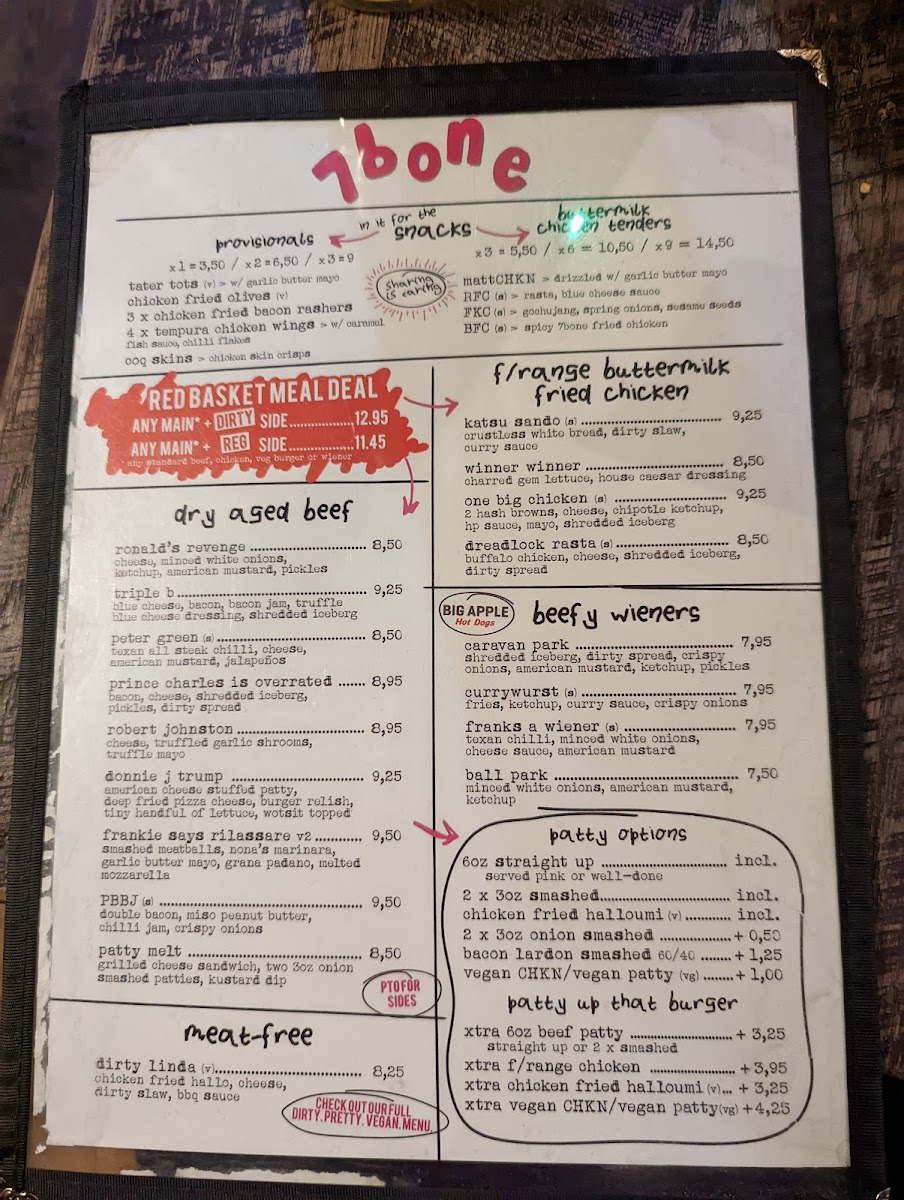 7bone
in it for the
snacks
provisionals
x1 = 3,50 / x2 = 6,50 / x3 = 9
tater tots (v) > w/ garlic butter mayo
chicken fried olives (v)
3 x chicken fried bacon rashers
4 x tempura chicken wings > w/ caramel
fish sauce, chilli flakes
coq skins > chicken skin crisps
sharing
is caring
buttermilk
chicken tenders
x3 = 5,50 / x6 = 10,50 / x9 = 14,50
mattCHKN > drizzled w/ garlic butter mayo
RFC (s) > rasta, blue cheese sauce
FKC (s) > gochujang, spring onions, sesame seeds
BFC (s) > spicy 7bone fried chicken
'RED BASKET MEAL DEAL
ANY MAIN* + DIRTY SIDE..................12.95
ANY MAIN* + REG SIDE..................11.45
* any standard beef, chicken, veg burger or wiener
dry aged beef
ronald's revenge ............................ 8,50
cheese, minced white onions,
ketchup, american mustard, pickles
triple b............................................. 9,25
blue cheese, bacon, bacon jam, truffle
blue cheese dressing, shredded iceberg
peter green (s) .................................... 8,50
texan all steak chilli, cheese,
american mustard, jalapeños
prince charles is overrated ....... 8,95
bacon, cheese, shredded iceberg,
pickles, dirty spread
robert johnston ................................ 8,95
cheese, truffled garlic shrooms,
truffle mayo
donnie j trump ................................ 9,25
american cheese stuffed patty,
deep fried pizza cheese, burger relish,
tiny handful of lettuce, wotsit topped
frankie says rilassare v2 ........... 9,50
smashed meatballs, nona's marinara,
garlic butter mayo, grana padano, melted
mozzarella
PBBJ (s) ................................................. 9,50
double bacon, miso peanut butter,
chilli jam, crispy onions
patty melt .......................................... 8,50
grilled cheese sandwich, two 3oz onion
smashed patties, kustard dip
PTO FOR
SIDES
meat-free
dirty linda (v)................................... 8,25
chicken fried hallo, cheese,
dirty slaw, bbq sauce
CHECK OUT OUR FULL
DIRTY. PRETTY. VEGAN. MENU.
f/range buttermilk
fried chicken
katsu sando (s) .................................. 9,25
crustless white bread, dirty slaw,
curry sauce
winner winner ................................. 8,50
charred gem lettuce, house caesar dressing
one big chicken (s) ........................... 9,25
2 hash browns, cheese, chipotle ketchup,
hp sauce, mayo, shredded iceberg
dreadlock rasta (s) ........................... 8,50
buffalo chicken, cheese, shredded iceberg,
dirty spread
BIG APPLE
Hot Dogs
beefy wieners
caravan park ....................................... 7,95
shredded iceberg, dirty spread, crispy
onions, american mustard, ketchup, pickles
currywurst (s) ..................................... 7,95
fries, ketchup, curry sauce, crispy onions
franks a wiener (s) ............................. 7,95
texan chilli, minced white onions,
cheese sauce, american mustard
ball park ............................................ 7,50
minced white onions, american mustard,
ketchup
patty options
6oz straight up .............................. incl.
served pink or well-done
2 x 3oz smashed............................... incl.
chicken fried halloumi (v) ........... incl.
2 x 3oz onion smashed .................. + 0,50
bacon lardon smashed 60/40 ........ + 1,25
vegan CHKN/vegan patty (vg) ....... + 1,00
patty up that burger
xtra 6oz beef patty ......................... + 3,25
straight up or 2 x smashed
xtra f/range chicken .................... + 3,95
xtra chicken fried halloumi (v)... + 3,25
xtra vegan CHKN/vegan patty(vg) +4,25